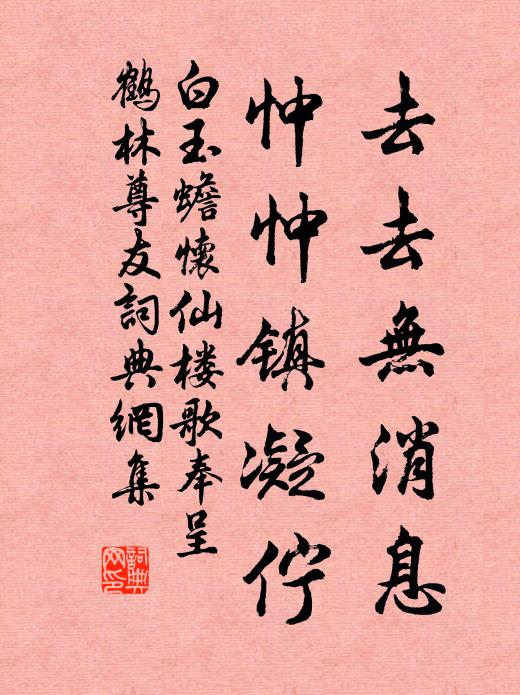 去去無消息
忡忡镇凝佇
白玉蟾懷仙楼歌奉呈
鶴林尊友詞典網集
詞典
网印